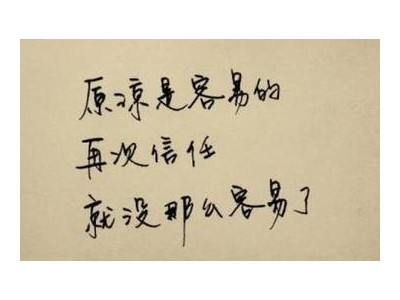 原凉是容易的
再次信任
就没那么容易了